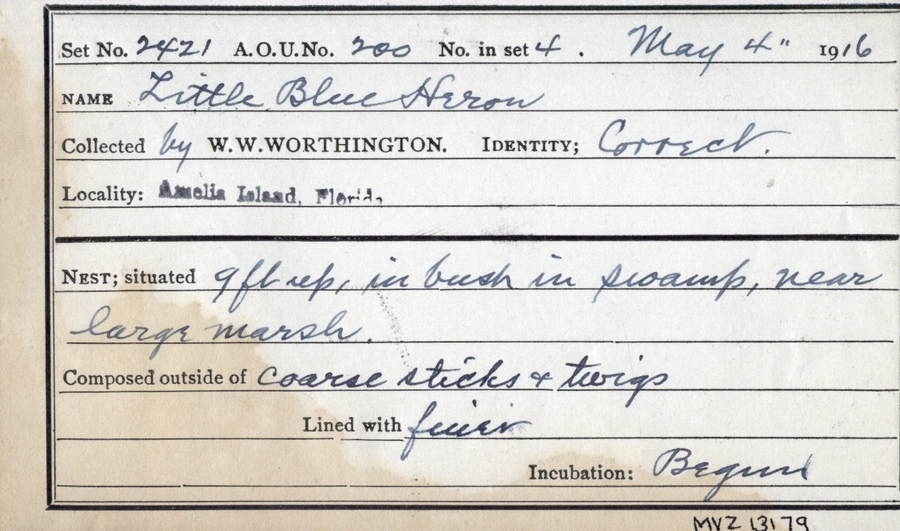 Set No. 2421 A.O.U. No. 200 No. in set 4 . May 4" 1916
NAME Little Blue Heron
Collected by W. W. WORTHINGTON. IDENTITY; Correct.
Locality: Amelia Island, Florida
NEST; situated 9 ft up, in bush in swamp, near
large marsh.
Composed outside of coarse sticks & twigs
Lined with finer
Incubation: Begun
MVZ 13179